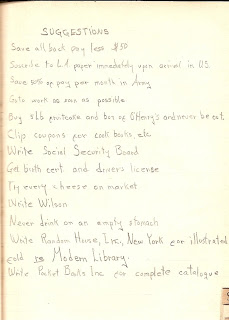 SUGGESTIONS
Save all back pay less $50
Subscribe to L.A paper immediately upon arrival in U.S.
Save 50% of pay per month in Army
Go to work as soon as possible
Buy 5 lb fruitcake and box of O'Henry's and never be out.
Clip coupons for cook books, etc
Write Social Security Board
Get birth cert and drivers license
Try every cheese on market
Write Wilson
Never drink on an empty stomach
Write Random House, Inc., New York for illustrated
fold re Modern Library.
Write Pocket Books Inc for complete catalogue